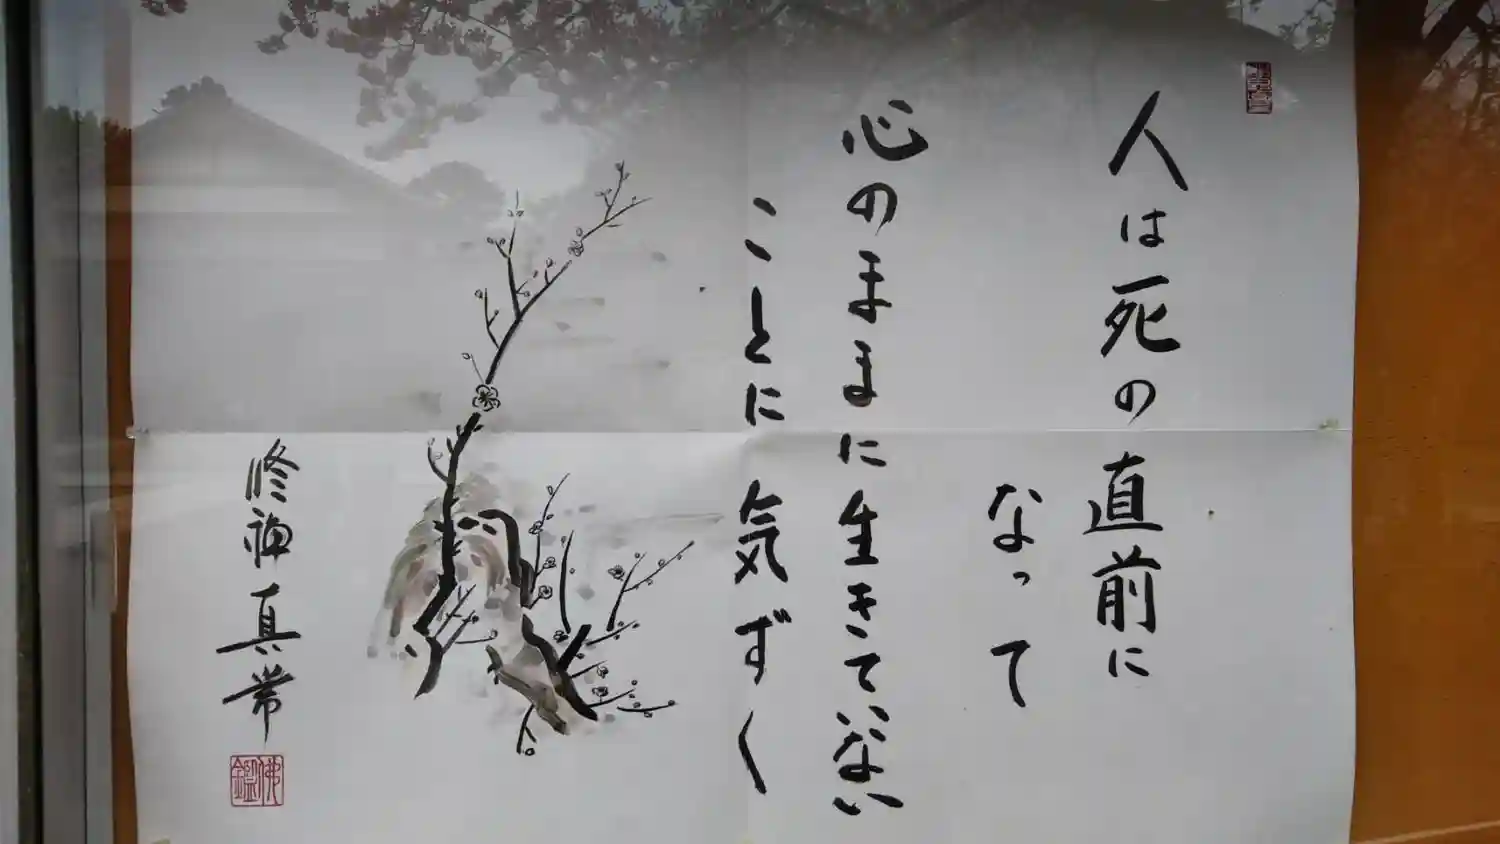 人は死の直前に
なって
心のままに生きていない
ことに気ずく
修禅真常
佛鑑